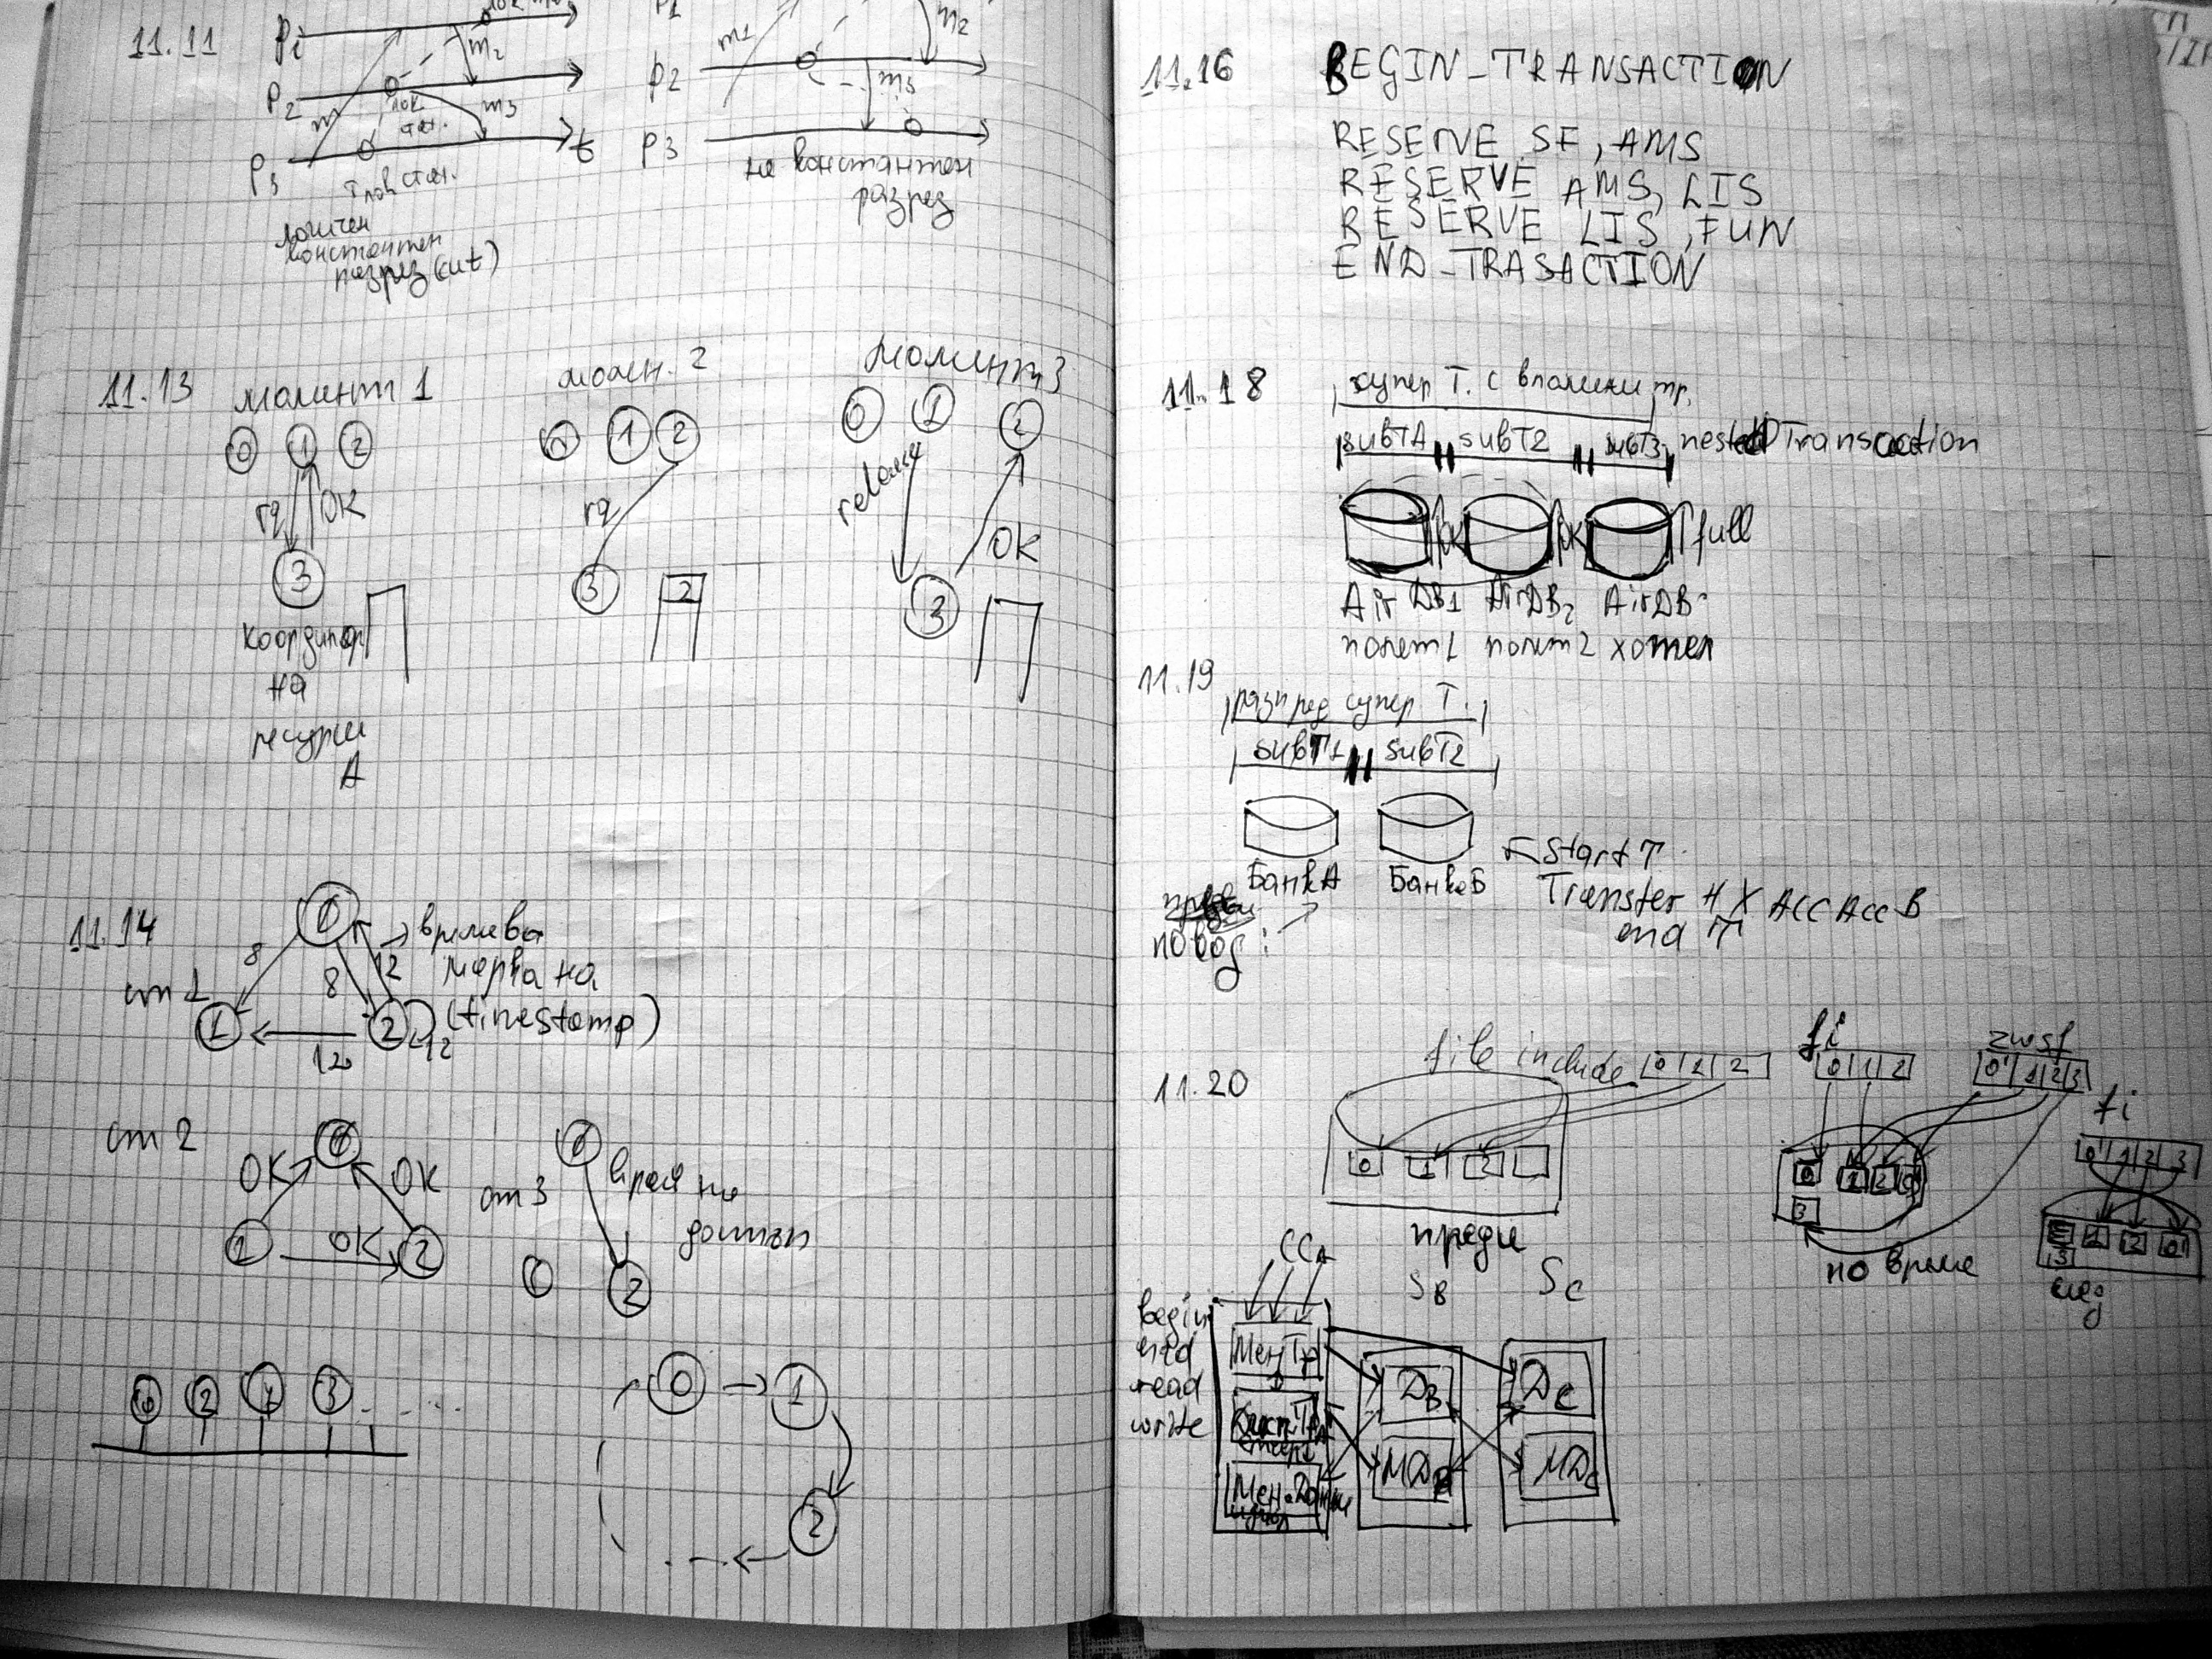 11.11
P1
m2
P2
m1
лок
m3
P3
t
глоб стан.
логичен
константен
разрез (cut)
P1
m1
m2
P2
m3
P3
не константен
разрез
11.13
момент 1
0 1 2
rq OK
3
координатор
на
ресурси
A
момен. 2
0 1 2
rq
3 2
момент 3
0 1 2
release
OK
3
11.14
0
8 8 12
→ времева
марка на
(timestamp)
ст 1
1 2
12
12
ст 2
0
OK OK
1 OK 2
ст 3
0
край на
достъп
1 2
0 2 1 3
0 → 1
2
11.16
BEGIN_TRANSACTION
RESERVE SF, AMS
RESERVE AMS, LIS
RESERVE LIS, FUN
END_TRASACTION
11.18
супер Т. с вложени тр.
subT1 subT2 subT3 nested Transaction
OK OK full
AirDB1 AirDB2 AirDB
полет1 полет2 хотел
11.19
разпред супер Т.
subT1 subT2
БанкА БанкаБ
повод:
Start T
Transfer # X Acc Acc B
end T
11.20
file include 0 1 2
0 1 2
преди
fi
0 1 2
0' 1 2 3
0 1 2 0'
3
по време
fi
0' 1 2 3
1 2 0'
3
след
CCA
SB SC
begin
end
read
write
Мен Тр
DB
DC
MDB
MDC